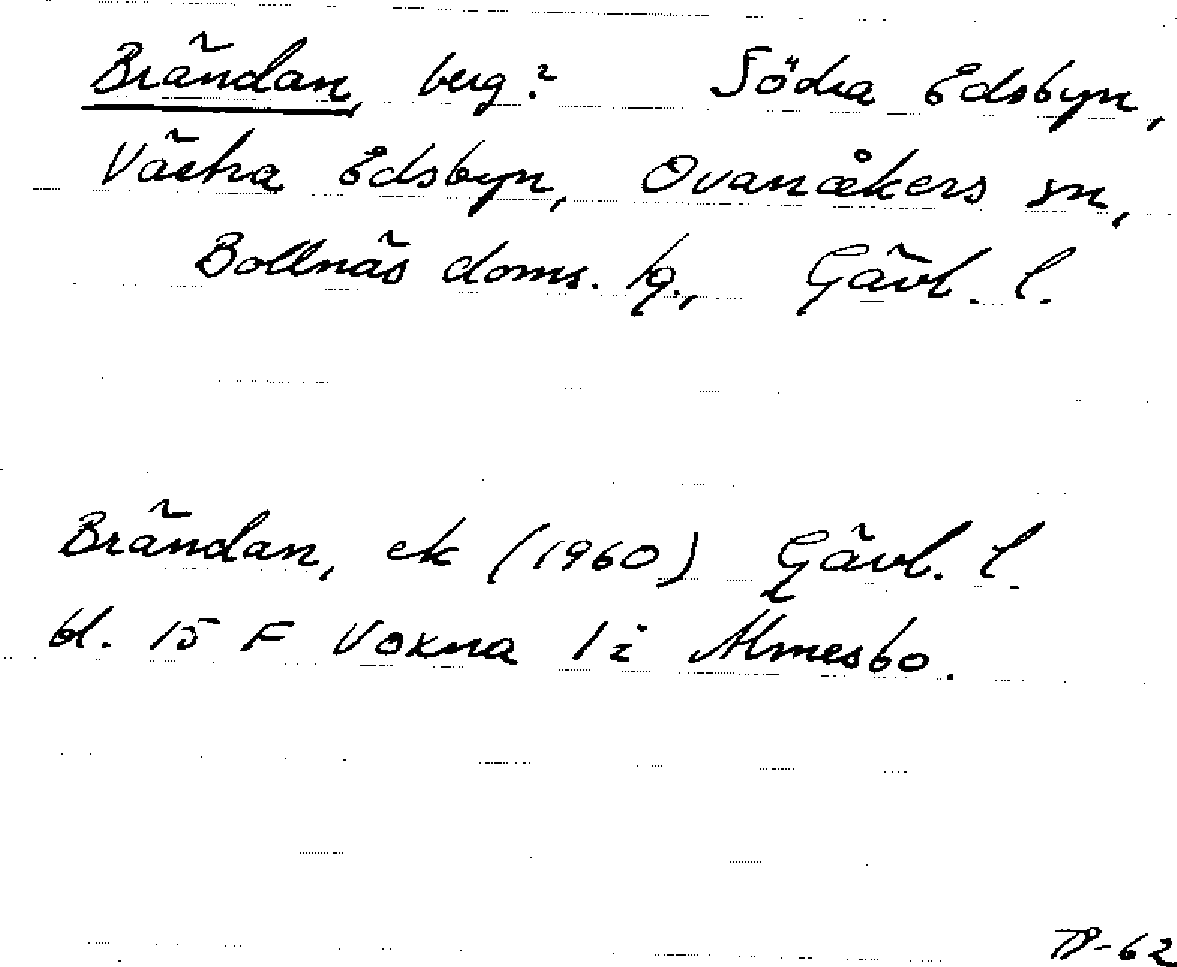 Brändan, berg? Södra Edsbyn,
Västra Edsbyn, Ovanåkers sn,
Bollnäs doms. hg., Gävl. l.
Brändan, ek (1960) Gävl. l.
bl. 15 F Voxna 1 i Almesbo.
TP-62